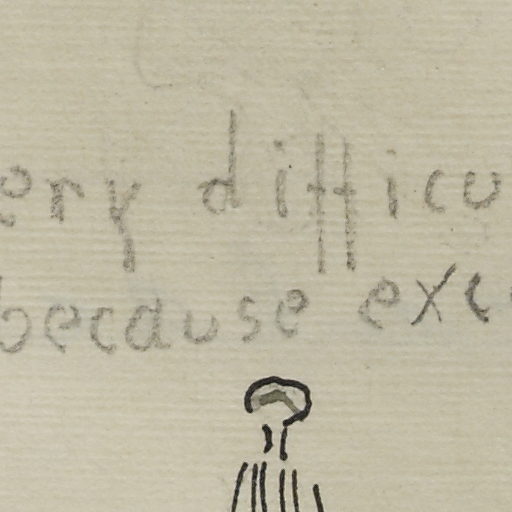 ery difficu
because exc